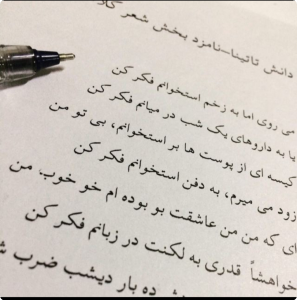 دانش تاتینا-نامزد بخش شعر کلا
می روی اما به زخم استخوانم فکر کن
یا به داروهای یک شب در میانم فکر کن
کیسه ای از پوست ها بر استخوانم، بی تو من
زود می میرم، به دفن استخوانم فکر کن
ای که من من عاشقت بو بوده ام خو خوب من
خواهشاً قدری به لکنت در زبانم فکر کن
ده بار دیشب ضرب